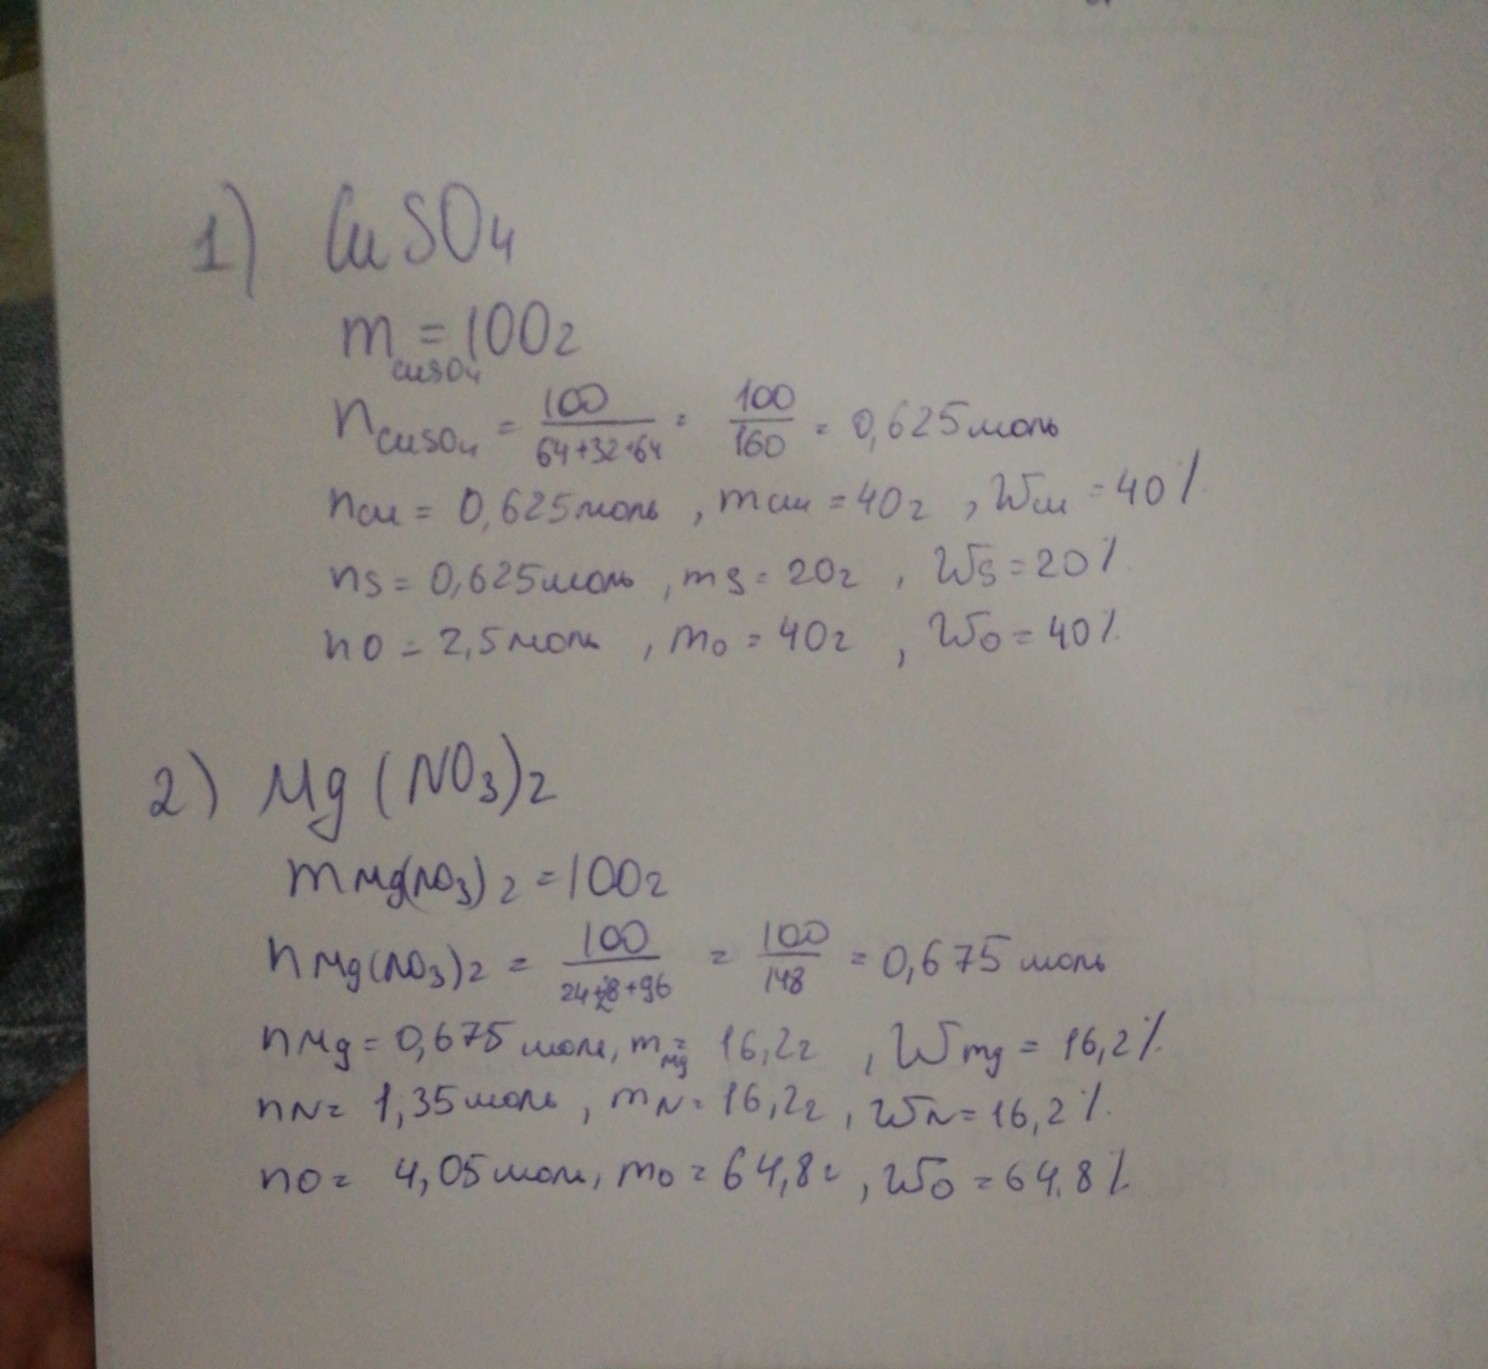 1) CuSO4
m CuSO4 = 100г
n CuSO4 = 100/(64+32+64) = 100/160 = 0,625 моль
n Cu = 0,625 моль, m Cu = 40г, W Cu = 40%
n S = 0,625 моль, m S = 20г, W S = 20%
n O = 2,5 моль, m O = 40г, W O = 40%
2) Mg(NO3)2
m Mg(NO3)2 = 100г
n Mg(NO3)2 = 100/(24+28+96) = 100/148 = 0,675 моль
n Mg = 0,675 моль, m Mg = 16,2г, W mg = 16,2%
n N = 1,35 моль, m N = 16,2г, W N = 16,2%
n O = 4,05 моль, m O = 64,8г, W O = 64,8%